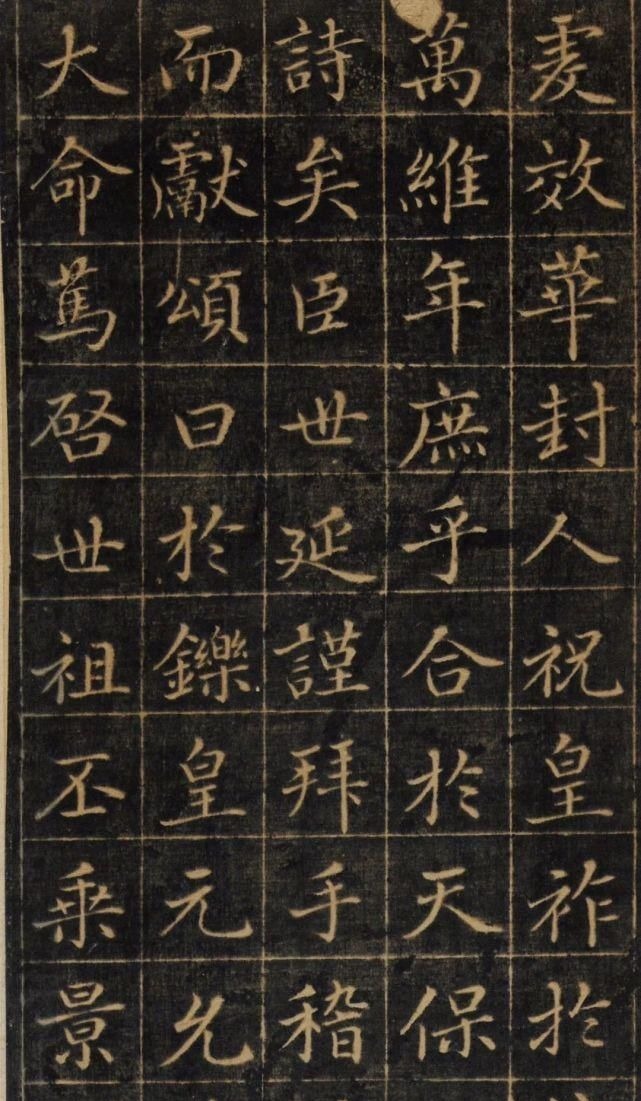 虔效華封人祝皇祚於
萬維年庶乎合於天保
詩矣臣世延謹拜手稽
而獻頌曰於鑠皇元允
大命篤啓世祖丕乗景